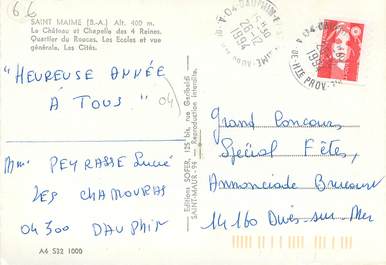 66
SAINT MAIME (B.-A.) Alt. 400 m.
Le Château et Chapelle des 4 Reines.
Quartier du Roucas. Les Ecoles et vue
générale. Les Cités.
"HEUREUSE ANNÉE
À TOUS."
04
Mme PEYRASSE Lucie
LES CHAMOURAS
04300 DAUPHIN
A4 S32 1000
Editions SOFER, 125 bis, rue Garibaldi
SAINT-MAUR - 94 - Reproduction interdite.
04 DAUPHIN
26-12
1994
DE-HTE PROV.
Grand Concours
Spécial Fêtes,
Annonciade Brucourt
14160 Dives-sur-Mer